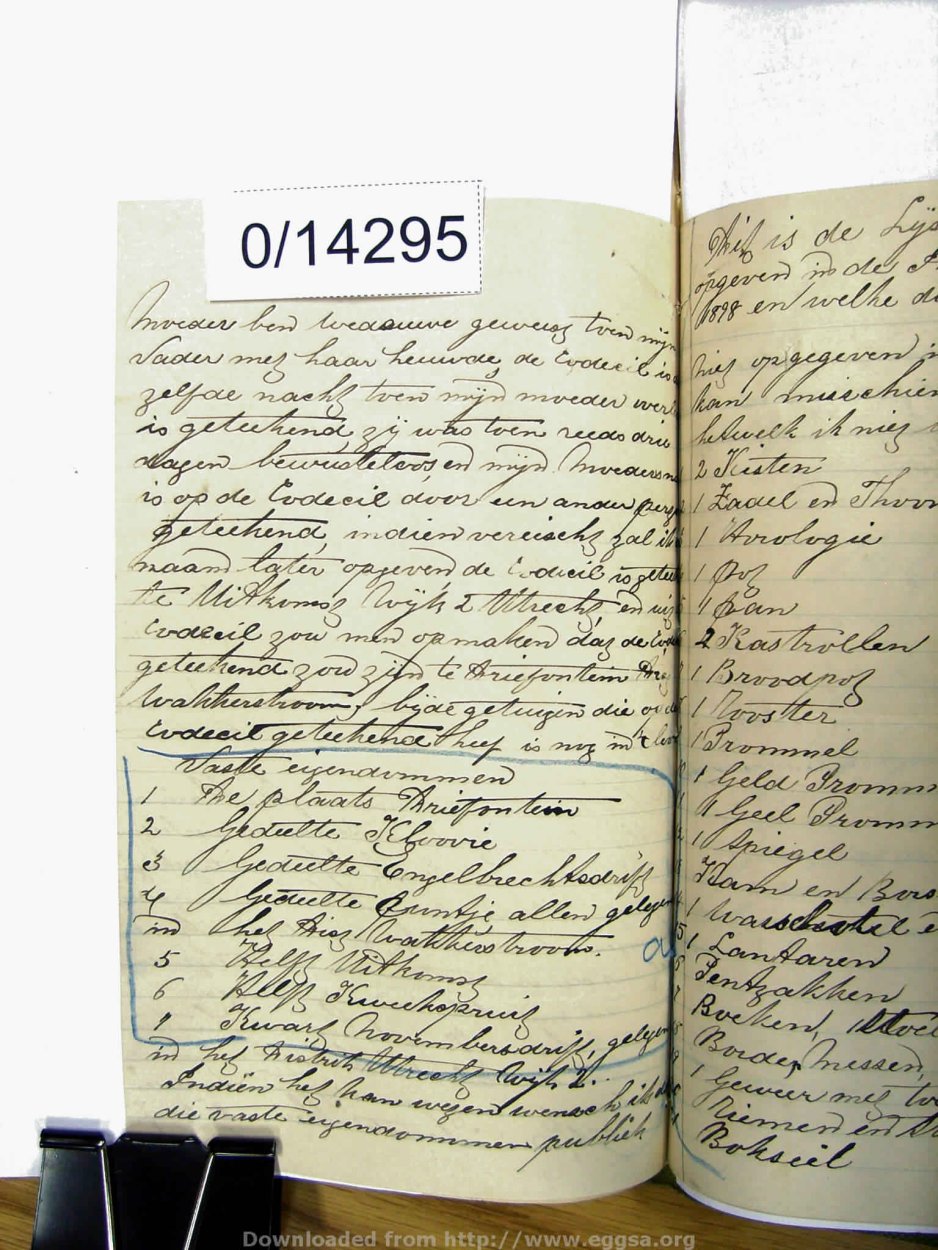 0/14295
Moeder ben weduwe geweest toen mijn
Vader met haar heuwde, de Codecil is
zelfde nacht toen mijn moeder over
is geteekend, zij was toen reeds drie
dagen bewusteloos en mijn Moeders
is op de Codecil door een ander
geteekend, indien vereischt zal ik
maand later opgeven de Codicil is
te Uitkomst Wijk 2 Utrecht en uit
Codecil zou men opmaken dat de
geteekend zou zijn te Driefontein
Wakkerstroom, byde getuigen die op de
Codecil geteekend heef is nog in 't
Vaste eigendommen
1 De plaats Driefontein
2 Gedeelte
3 Gedeelte Engelbrechtsdrift
4 Gedeelte Puntje allen gelegen
in het Dist Wakkerstroom.
5 Helft Uitkomst
6 Helft Kweekspruit
7 Kwart Novembersdrift, gelegen
in het Distrik Utrecht Wijk 2.
Indiën het kan wezen wensch ik
die vaste eigendommen publiek
Dit is de Lys
opgeven in de
1898 en welke
niet opgegeven
kan misschien
hetwelk ik niet
2 Kisten
1 Zadel en Thoom
1 Horologie
1 Pot
1 Pan
2 Kastrollen
1 Broodpot
1 Rooster
1 Trommel
1 Geld Tromm
1 Geel Tromm
1 Spiegel
Kam en Bors
1
1 Lantaren
Pentzakken
Boeken, 1 Stoel
Borden, Messen,
1 Geweer met
Riemen en
Bokseil
Downloaded from http://www.eggsa.org